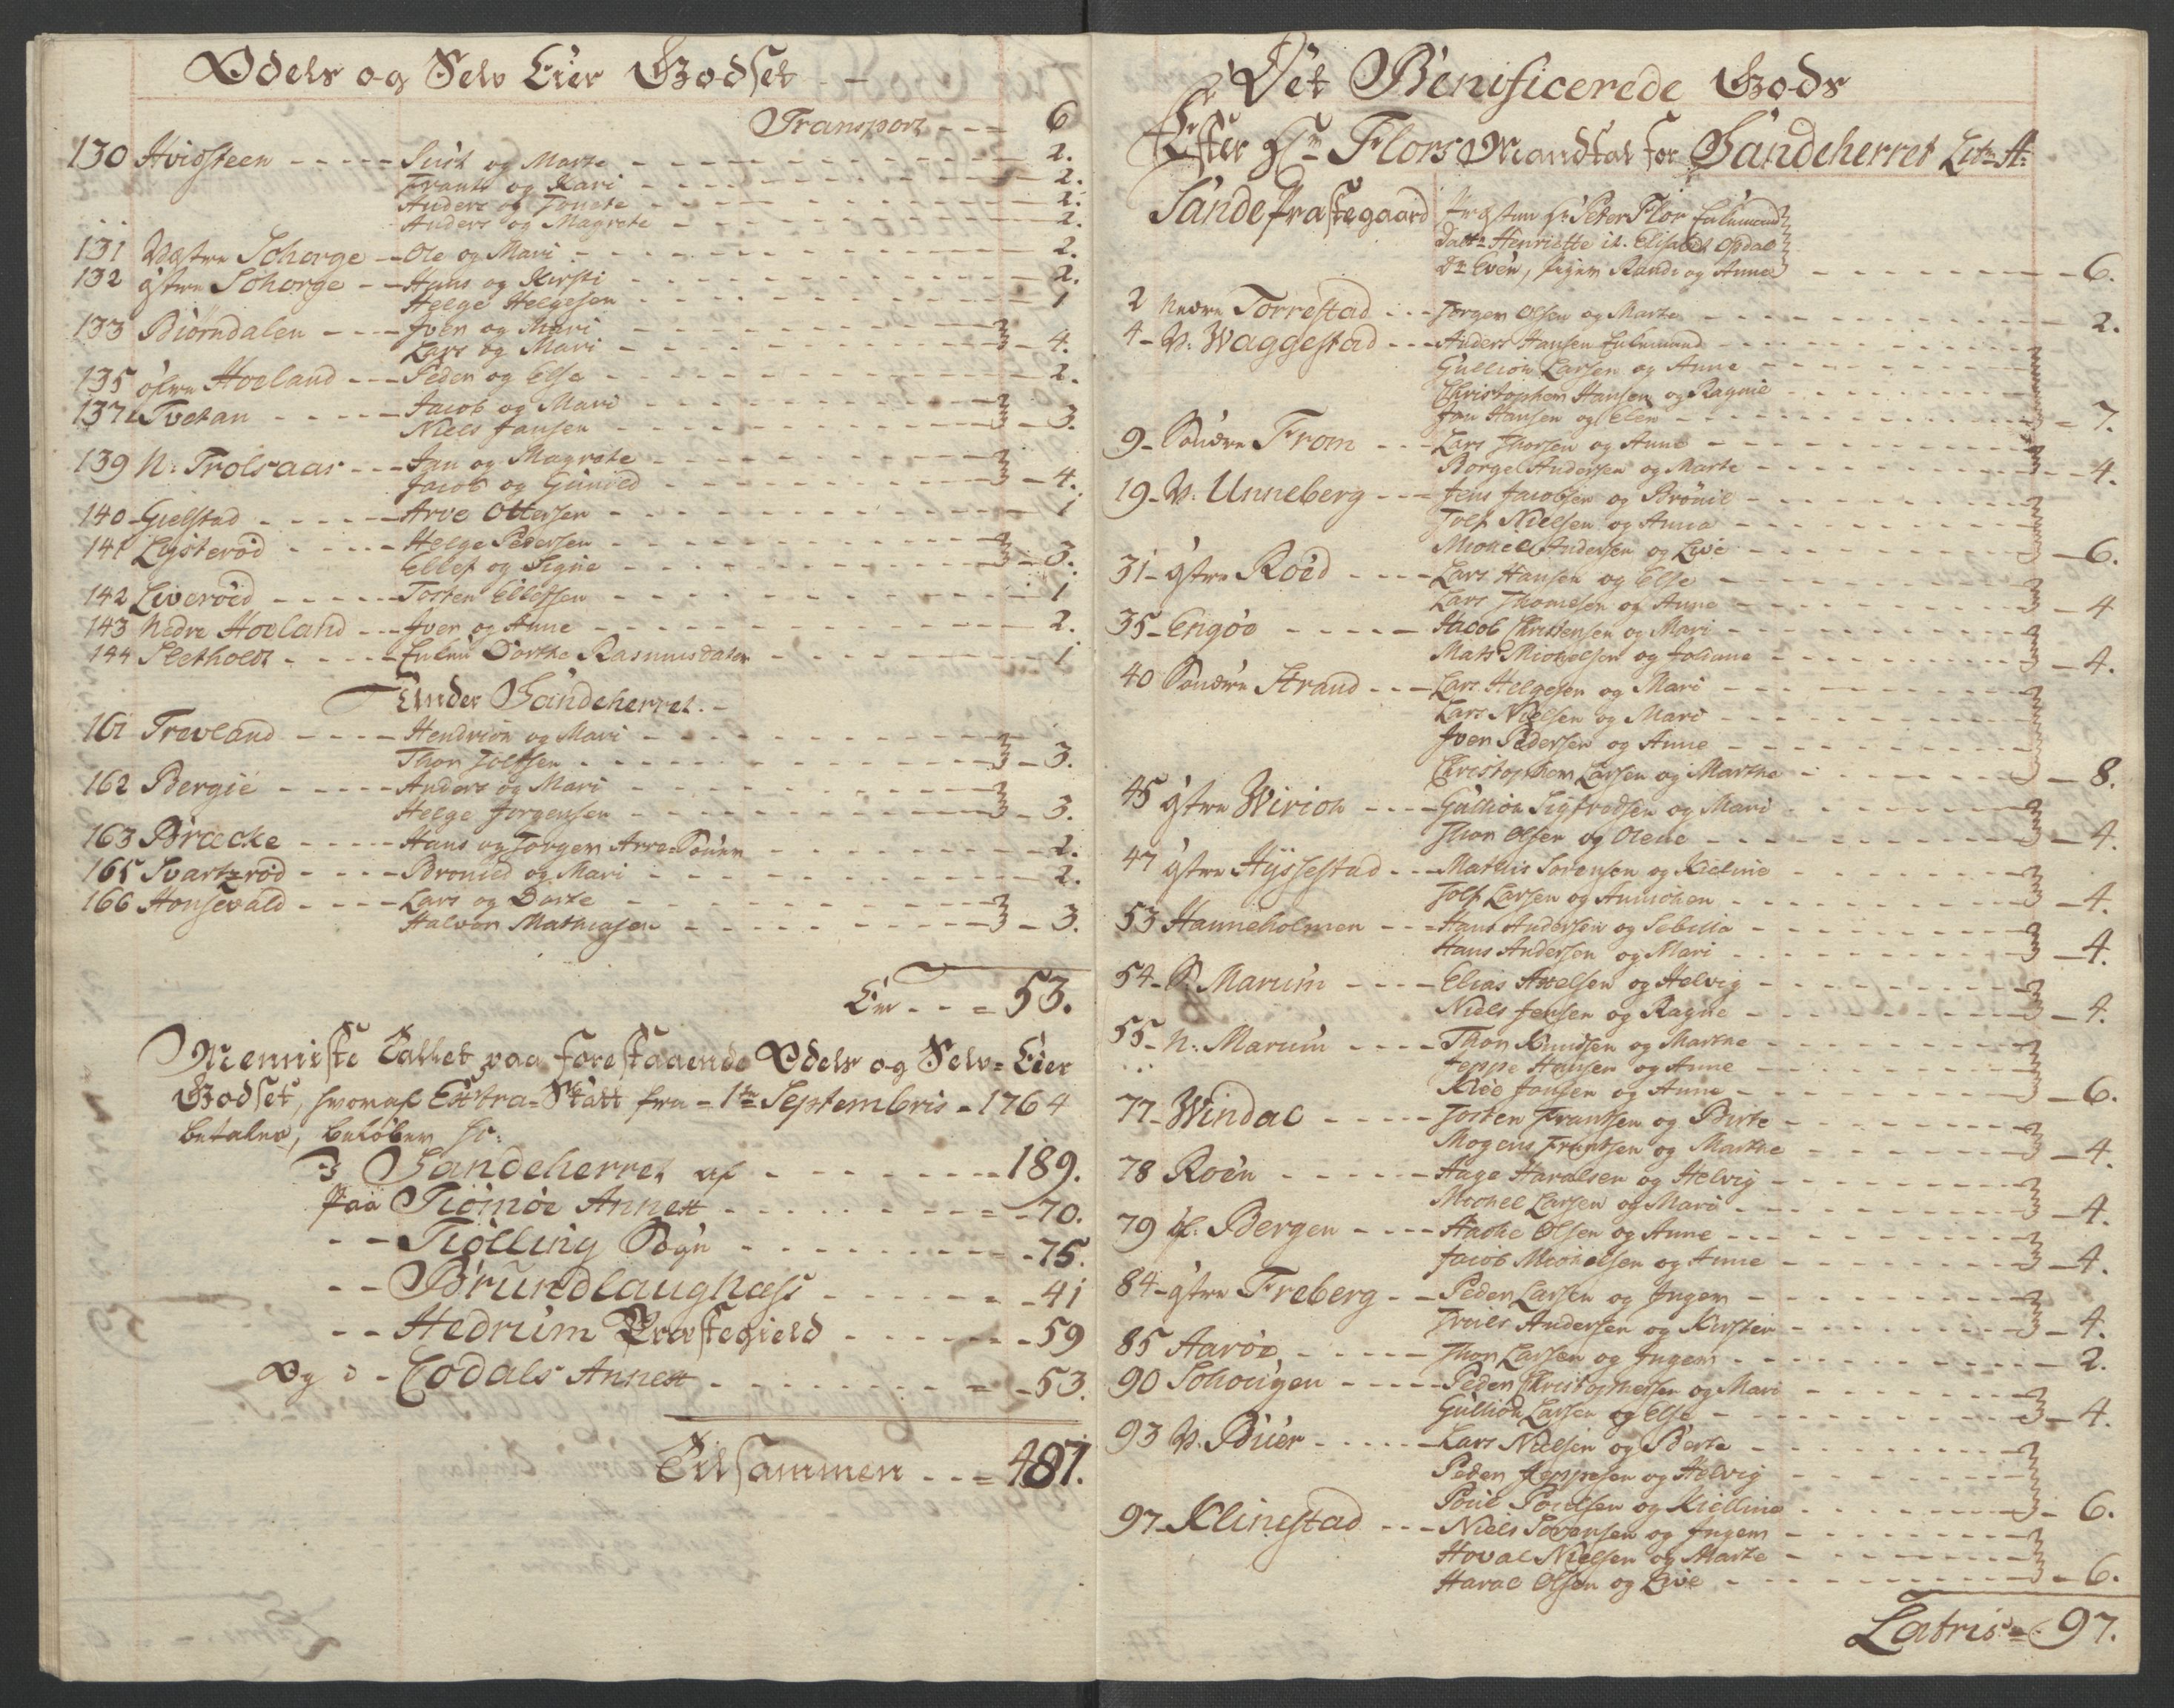 Odels og Selv Eier Godset
Transport - - - 6
130 Hvidsteen - - - - - og Marte - - - 2.
Frants og Kari - - - 2.
Anders og - - - 2.
Anders og Magrete - - - 2.
131 Westre Schorge - - Ole og Mari - - - 2.
132 østre Schorge - - Hans og Kirsti - - - 2.
Helge Helgesen - - - 1
133 Biørndalen - - - - Iver og Mari
Lars og Mari - - - 4.
135 øfre Hoeland - - - Peder og Else - - - 2.
137 Tvetan - - - - - Jacob og Mari
Niels Jansen - - - 3.
139 N: Trolsaas - - - Jan og Magrete
Jacob og Gunild - - - 4.
140 Gielstad - - - - - Arve Ottersen - - - 1
141 Lysterød - - - - - Helge Pedersen
Ellef og Signe - - - 3.
142 Liverøed - - - - - Tosten Ellefsen - - - 1
143 Nedre Hoeland - - - Iver og Anne - - - 2.
144 Sletholt - - - - - Enken Dorthe Rasmusdater - - - 1
Under Sandeherret. -
161 Trevland - - - - Hendrich og Mari
Thor - - - 3.
162 Bergie - - - - - Anders og Mari
Helge Jørgensen - - - 3.
163 Bræcke - - - - - Hans og Torger Arve Sønner - - - 2.
165 Svartzrød - - - - Bronild og Mari - - - 2.
166 Honsevald - - - - Lars og Dorte
Halvor Mathiasen - - - 3.
Er - - = 53.
Menniske Tallet paa forestaaende Odels og Selv-Eier
Godset, hvoraf Extra-Skatt fra - 1te Septembris - 1764
betales, beløber sig:
I Sandeherret af - - - 189.
Paa Tiømøe Annex - - - 70.
- - Tiølling Sogn - - - 75.
- - Brundlaugnæss - - - 41
- - Hedrum Præstegield - - - 59
Og i - Lodals Annex - - - 53.
Tilsammen - - = 487.
Det Benificerede Gods
Efter Hr Flors Mandtal for Sandeherret Litr A:
Sande Præstegaard Præsten Hr Peter Flor Enkemand
Datr Henriette it. Elisabet Opdal
Dr Even, Piger Randi og Anne - - - 6.
2 Nedre Torrestad - - - Jørgen Olsen og Marte - - - 2.
4 - V: Waggestad - - - Anders Hansen Enkemand
Gullich Larsen og Anne
Christopher Hansen og Ragnil
Jan Hansen og Elen - - - 7.
9 - Søndre From - - - Lars Thorsen og Anne
Borge Andersen og Marte - - - 4.
19 - V: Unneberg - - - Jens Jacobsen og Brønil
Tolf Nielsen og Anna
Michel Andersen og Live - - - 6.
31 - østre Roed - - - - Lars Hansen og Else
Lars Thomesen og Anne - - - 4
35 - Engøe - - - - - Jacob Christensen og Mari
Mats Michelsen og - - - 4.
40 Søndre Strand - - - Lars Helgesen og Mari
Lars Nielsen og Mari
Iver Pedersen og Anne
Christopher Larsen og Marthe - - - 8.
45 østre Wirich - - - - Gullich Sigfredsen og Mari
Thor Olsen og Olene - - - 4.
47 østre Hyssestad - - - Mathis Sørensen og Kieline
Tolf Larsen og Annichen - - - 4.
53 Hanneholmen - - - Hans Andersen og Sebilla
Hans Andersen og Mari - - - 4.
54 - S. Marum - - - - Elias Axelsen og Helvig
Niels Jensen og Ragne - - - 4.
55 - N: Marum - - - - Thor Knudsen og Marthe
Jeppe Hansen og Anne
Jansen og Anne - - - 6.
77 - Windal - - - - - Tosten Frantsen og Birte
Mogens Frantsen og Marthe - - - 4.
78 Roen - - - - - Aage Haralsen og Helvig
Michel Larsen og Mari - - - 4.
79 øf: Bergen - - - - Olsen og Anne
Jacob Michelsen og Anne - - - 4.
84 - østre Freberg - - Peder Larsen og Inger
Andersen og Kirsten - - - 4.
85 Aarøe - - - - - Thor Larsen og Inger - - - 2.
90 Schougen - - - - Peder Christophersen og Mari
Gullich Larsen og Else - - - 4.
93 V. Buer - - - - - Lars Nielsen og Berte
Peder Jeppesen og Helvig
Poul Poulsen og Kielline - - - 6.
97 - Klinestad - - - Niels Sørensen og Inger
Hoval Nielsen og Marte
Haral Olsen og Live - - - 6.
Latris = 97.